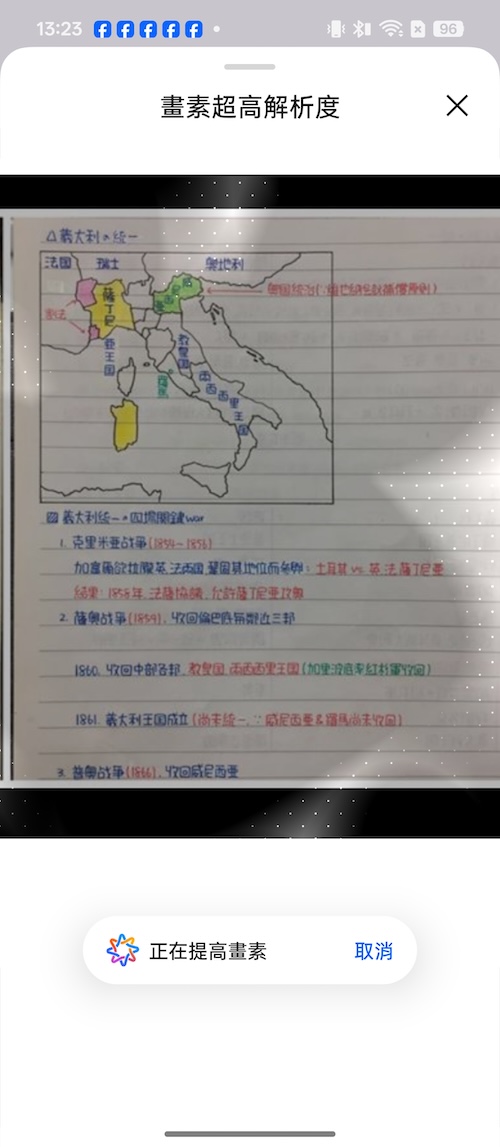 13:23
96
畫素超高解析度
△義大利の統一
法国 瑞士 奧地利
薩丁尼亞王国
威尼西亞
奧国統治(∵維也納會議補償原則)
割法
教皇国
羅馬
兩西西里王国
義大利統一の四場關鍵war
1. 克里米亞战爭(1854~1856)
加富爾欲拉攏英.法兩国,鞏固其地位而参與:土耳其 vs. 英.法.薩丁尼亞
結果:1858年.法薩協議,允許薩丁尼亞攻奧
2. 薩奧战爭(1859),收回倫巴底與鄰近三邦
1860.收回中部各邦.教皇国.兩西西里王国(加里波底率紅衫軍收回)
1861.義大利王国成立(尚未統一,∵威尼西亞&羅馬尚未收回)
3. 普奧战爭(1866),收回威尼西亞
正在提高畫素
取消